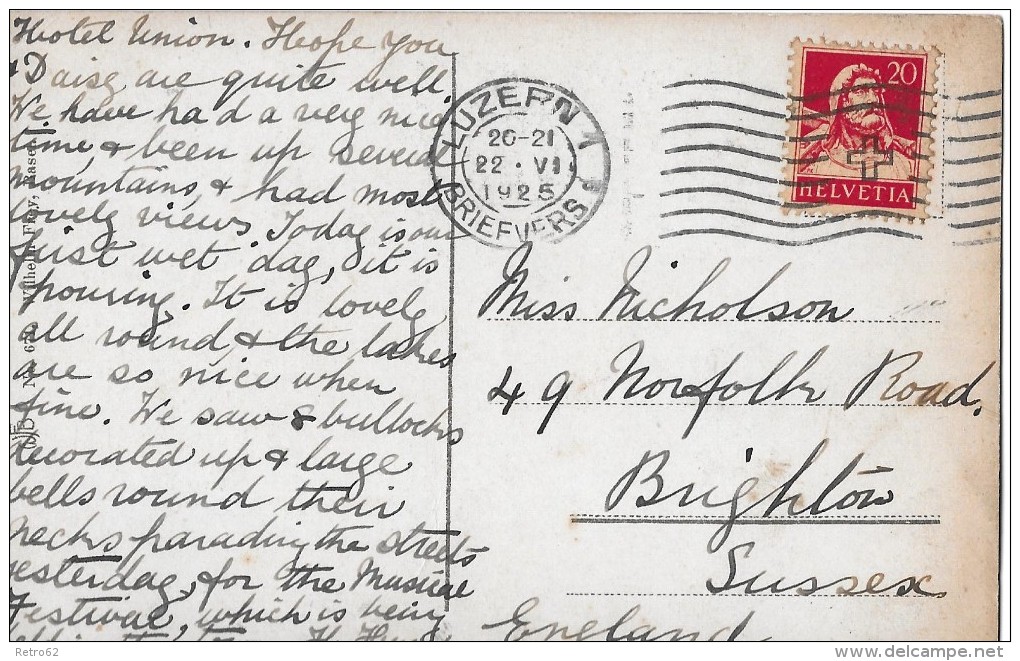 Hotel Union. Hope you
& Daisy are quite well.
We have had a very nice
time, & been up several
mountains, & had most
lovely views. Today is our
first wet day, it is
pouring. It is lovely
all round & the lakes
are so nice when
fine. We saw 8 bullocks
decorated up & large
bells round their
necks parading the streets
yesterday, for the Musical
Festival, which is being
LUZERN 1
20-21
22 · VI
1925
BRIEFVERS.
20
HELVETIA
Miss Nicholson
49 Norfolk Road,
Brighton
Sussex
England
Wilhelm Frey, Basel
Retro62
delcampe.net